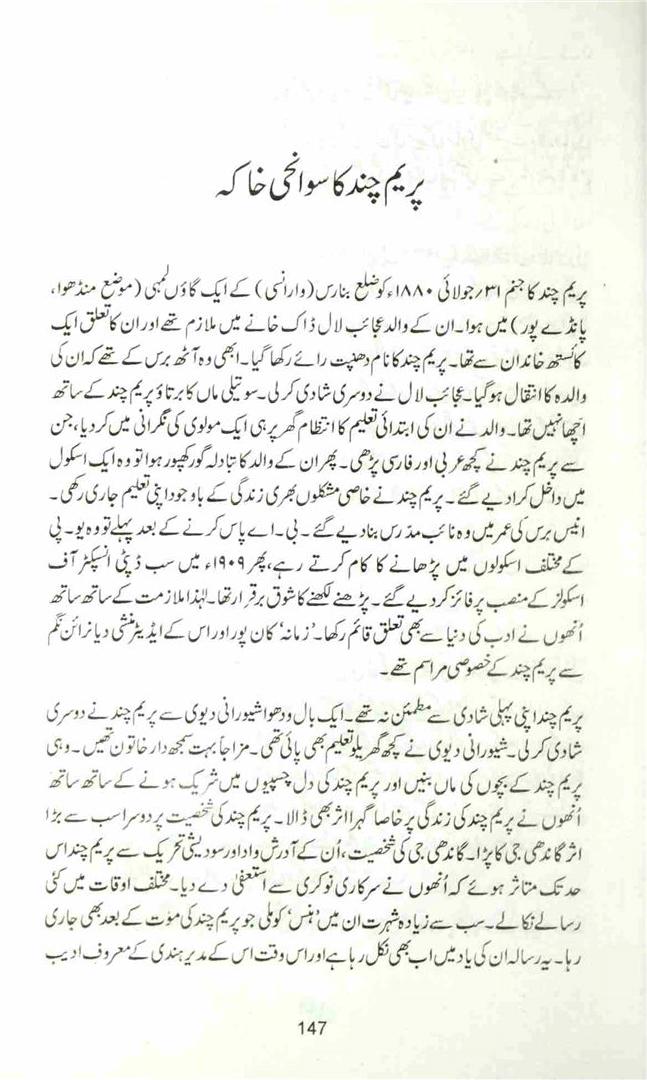 پریم چند کا سوانحی خاکہ
پریم چند کا جنم ۳۱؍جولائی ۱۸۸۰ء کو ضلع بنارس (وارانسی) کے ایک گاؤں لمہی (موضع منڈھوا،
پانڈے پور) میں ہوا۔ ان کے والد عجائب لال ڈاک خانے میں ملازم تھے اور ان کا تعلق ایک
کائستھ خاندان سے تھا۔ پریم چند کا نام دھنپت رائے رکھا گیا۔ ابھی وہ آٹھ برس کے تھے کہ ان کی
والدہ کا انتقال ہوگیا۔ عجائب لال نے دوسری شادی کرلی۔ سوتیلی ماں کا برتاؤ پریم چند کے ساتھ
اچھا نہیں تھا۔ والد نے ان کی ابتدائی تعلیم کا انتظام گھر پر ہی ایک مولوی کی نگرانی میں کردیا، جن
سے پریم چند نے کچھ عربی اور فارسی پڑھی۔ پھر ان کے والد کا تبادلہ گورکھپور ہوا تو وہ ایک اسکول
میں داخل کرا دیے گئے۔ پریم چند نے خاصی مشکلوں بھری زندگی کے باوجود اپنی تعلیم جاری رکھی۔
انیس برس کی عمر میں وہ نائب مدرّس بنا دیے گئے۔ بی۔اے پاس کرنے کے بعد پہلے تو وہ یو۔پی
کے مختلف اسکولوں میں پڑھانے کا کام کرتے رہے، پھر ۱۹۰۹ء میں سب ڈپٹی انسپکٹر آف
اسکولز کے منصب پر فائز کردیے گئے۔ پڑھنے لکھنے کا شوق برقرار تھا۔ لہٰذا ملازمت کے ساتھ ساتھ
اُنھوں نے ادب کی دنیا سے بھی تعلق قائم رکھا۔ ’زمانہ‘ کان پور اور اس کے ایڈیٹر منشی دیا نرائن نگم
سے پریم چند کے خصوصی مراسم تھے۔
پریم چند اپنی پہلی شادی سے مطمئن نہ تھے۔ ایک بال ودھوا شیورانی دیوی سے پریم چند نے دوسری
شادی کرلی۔ شیورانی دیوی نے کچھ گھریلو تعلیم بھی پائی تھی۔ مزاجاً بہت سمجھ دار خاتون تھیں۔ وہی
پریم چند کے بچوں کی ماں بنیں اور پریم چند کی دل چسپیوں میں شریک ہونے کے ساتھ ساتھ
اُنھوں نے پریم چند کی زندگی پر خاصا گہرا اثر بھی ڈالا۔ پریم چند کی شخصیت پر دوسرا سب سے بڑا
اثر گاندھی جی کا پڑا۔ گاندھی جی کی شخصیت، اُن کے آدرش واد اور سودیشی تحریک سے پریم چند اس
حد تک متاثر ہوئے کہ اُنھوں نے سرکاری نوکری سے استعفیٰ دے دیا۔ مختلف اوقات میں کئی
رسالے نکالے۔ سب سے زیادہ شہرت ان میں ’ہنس‘ کو ملی جو پریم چند کی موت کے بعد بھی جاری
رہا۔ یہ رسالہ ان کی یاد میں اب بھی نکل رہا ہے اور اس وقت اس کے مدیر ہندی کے معروف ادیب
147